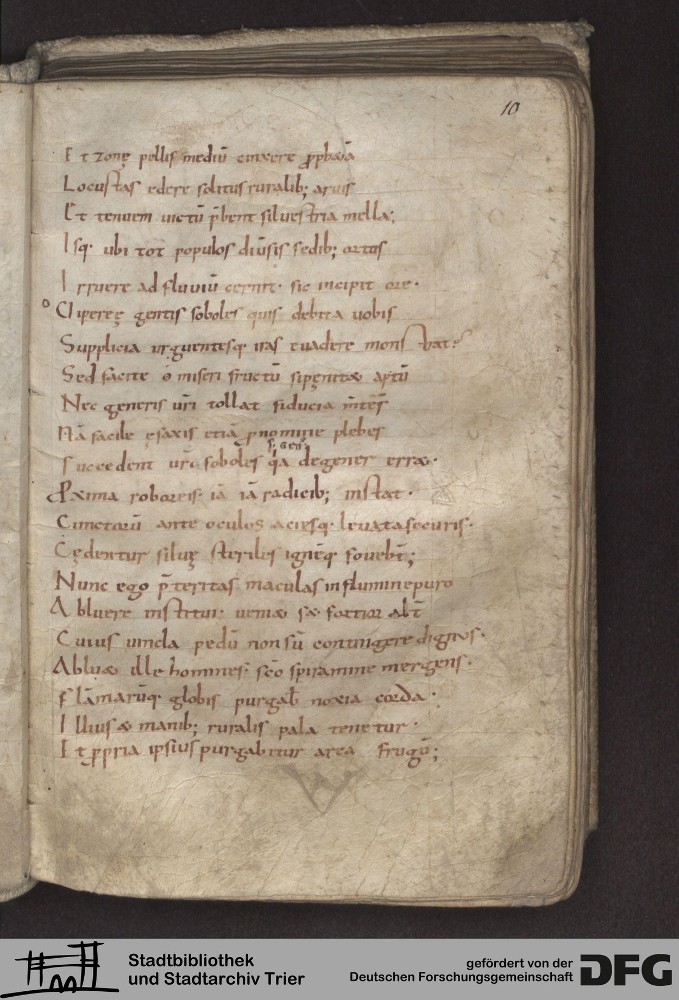 10
Et zonę pellis mediū cinxere ꝓpbaiā
Locustas edere solitus ruralib; aruis
Et tenuem uictū p̄bent siluestria mella;
Isq· ubi tot populos diūsis sedib; ortus
Irruere ad fluuiū cernit· sic incipit ore·
Vipereę gentis soboles quis debita uobis
Supplicia urguentesq· iras euadere monstrat?
Sed facite ó miseri fructū sipęnitet aptū
Nec generis ur̄i tollat fiducia mentē
Nā facile ęsaxis etiā pnomine plebes
s· gen'
Succedent ur̄a soboles qa degener erræ·
Proxima roboreis· iā iā radicib; instat·
Cunctarū ante oculos aciesq· leuata securis·
Cędentur siluę steriles ignēq· fouebt̄;
Nunc ego p̄teritas maculas in flumine puro
Abluere institui· ueniet sed fortior abt̄
Cuius uincla pedū non sū contingere dignus·
Abluet ille homines· sc̄o spiramine mergens·
Flāmarūq· globis purgab̄ noxia corda·
Illius & manib; ruralis pala tenetur·
Et ꝓpria ipsius purgabitur area frugū;
Stadtbibliothek
und Stadtarchiv Trier
gefördert von der
Deutschen Forschungsgemeinschaft
DFG